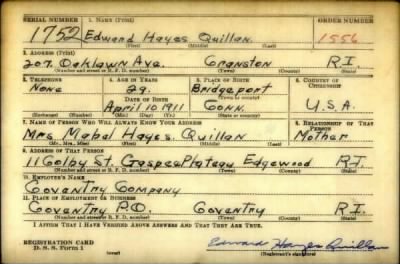 SERIAL NUMBER 1. NAME (Print) ORDER NUMBER
1752 Edward Hayes Quillan 1556
(First) (Middle) (Last)
2. ADDRESS (Print)
207. Oaklawn Ave. Cranston R.I.
(Number and street or R. F. D. number) (Town) (County) (State)
3. TELEPHONE 4. AGE IN YEARS 5. PLACE OF BIRTH 6. COUNTRY OF CITIZENSHIP
None 29. Bridgeport
DATE OF BIRTH (Town or county)
April 10 1911 Conn. U.S.A.
(Exchange) (No.) (Mo.) (Day) (Yr.) (State or country)
7. NAME OF PERSON WHO WILL ALWAYS KNOW YOUR ADDRESS 8. RELATIONSHIP OF THAT PERSON
Mrs Mabel Hayes. Quillan Mother
(Mr., Mrs., Miss) (First) (Middle) (Last)
9. ADDRESS OF THAT PERSON
11 Colby St. Gaspee Plateau Edgewood R.I.
(Number and street or R. F. D. number) (Town) (County) (State)
10. EMPLOYER'S NAME
Coventry Company
11. PLACE OF EMPLOYMENT OR BUSINESS
Coventry P.O. Coventry R.I.
(Number and street or R. F. D. number) (Town) (County) (State)
I AFFIRM THAT I HAVE VERIFIED ABOVE ANSWERS AND THAT THEY ARE TRUE.
REGISTRATION CARD
D. S. S. Form 1 (over) Edward Hayes Quillan
(Registrant's signature)